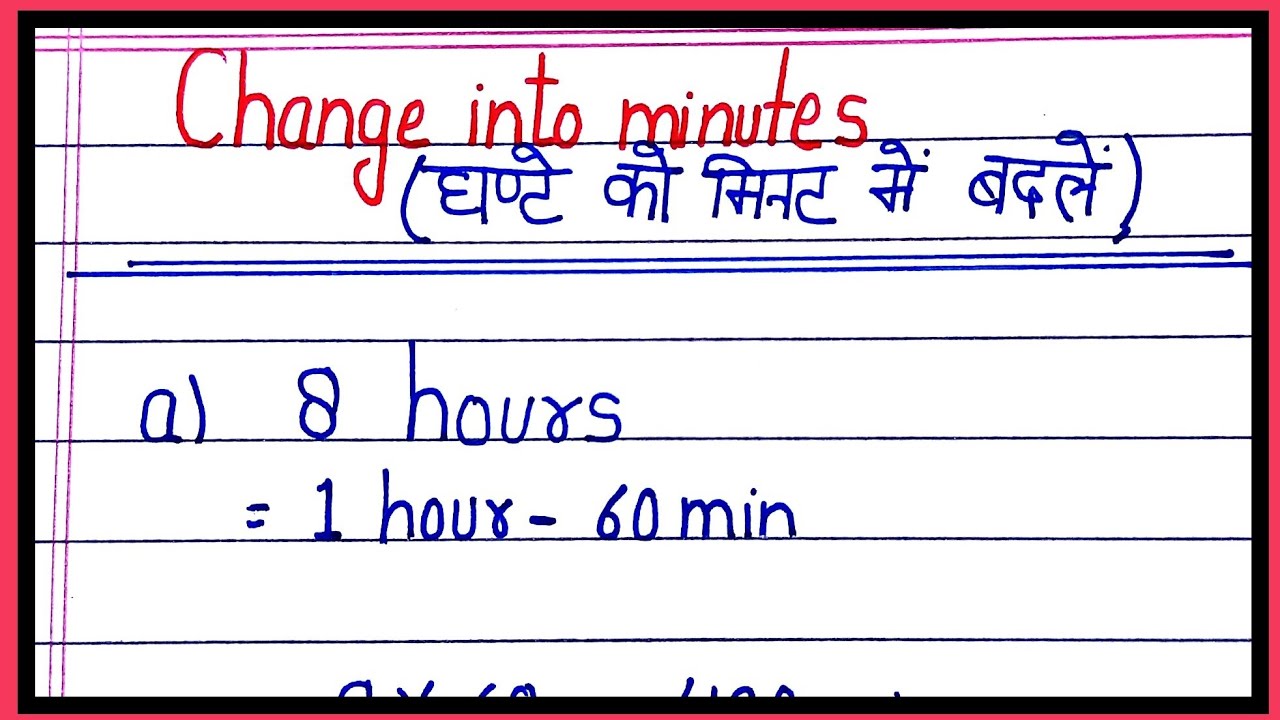 Change into minutes
(घण्टे को मिनट में बदलें)
a) 8 hours
= 1 hour - 60 min